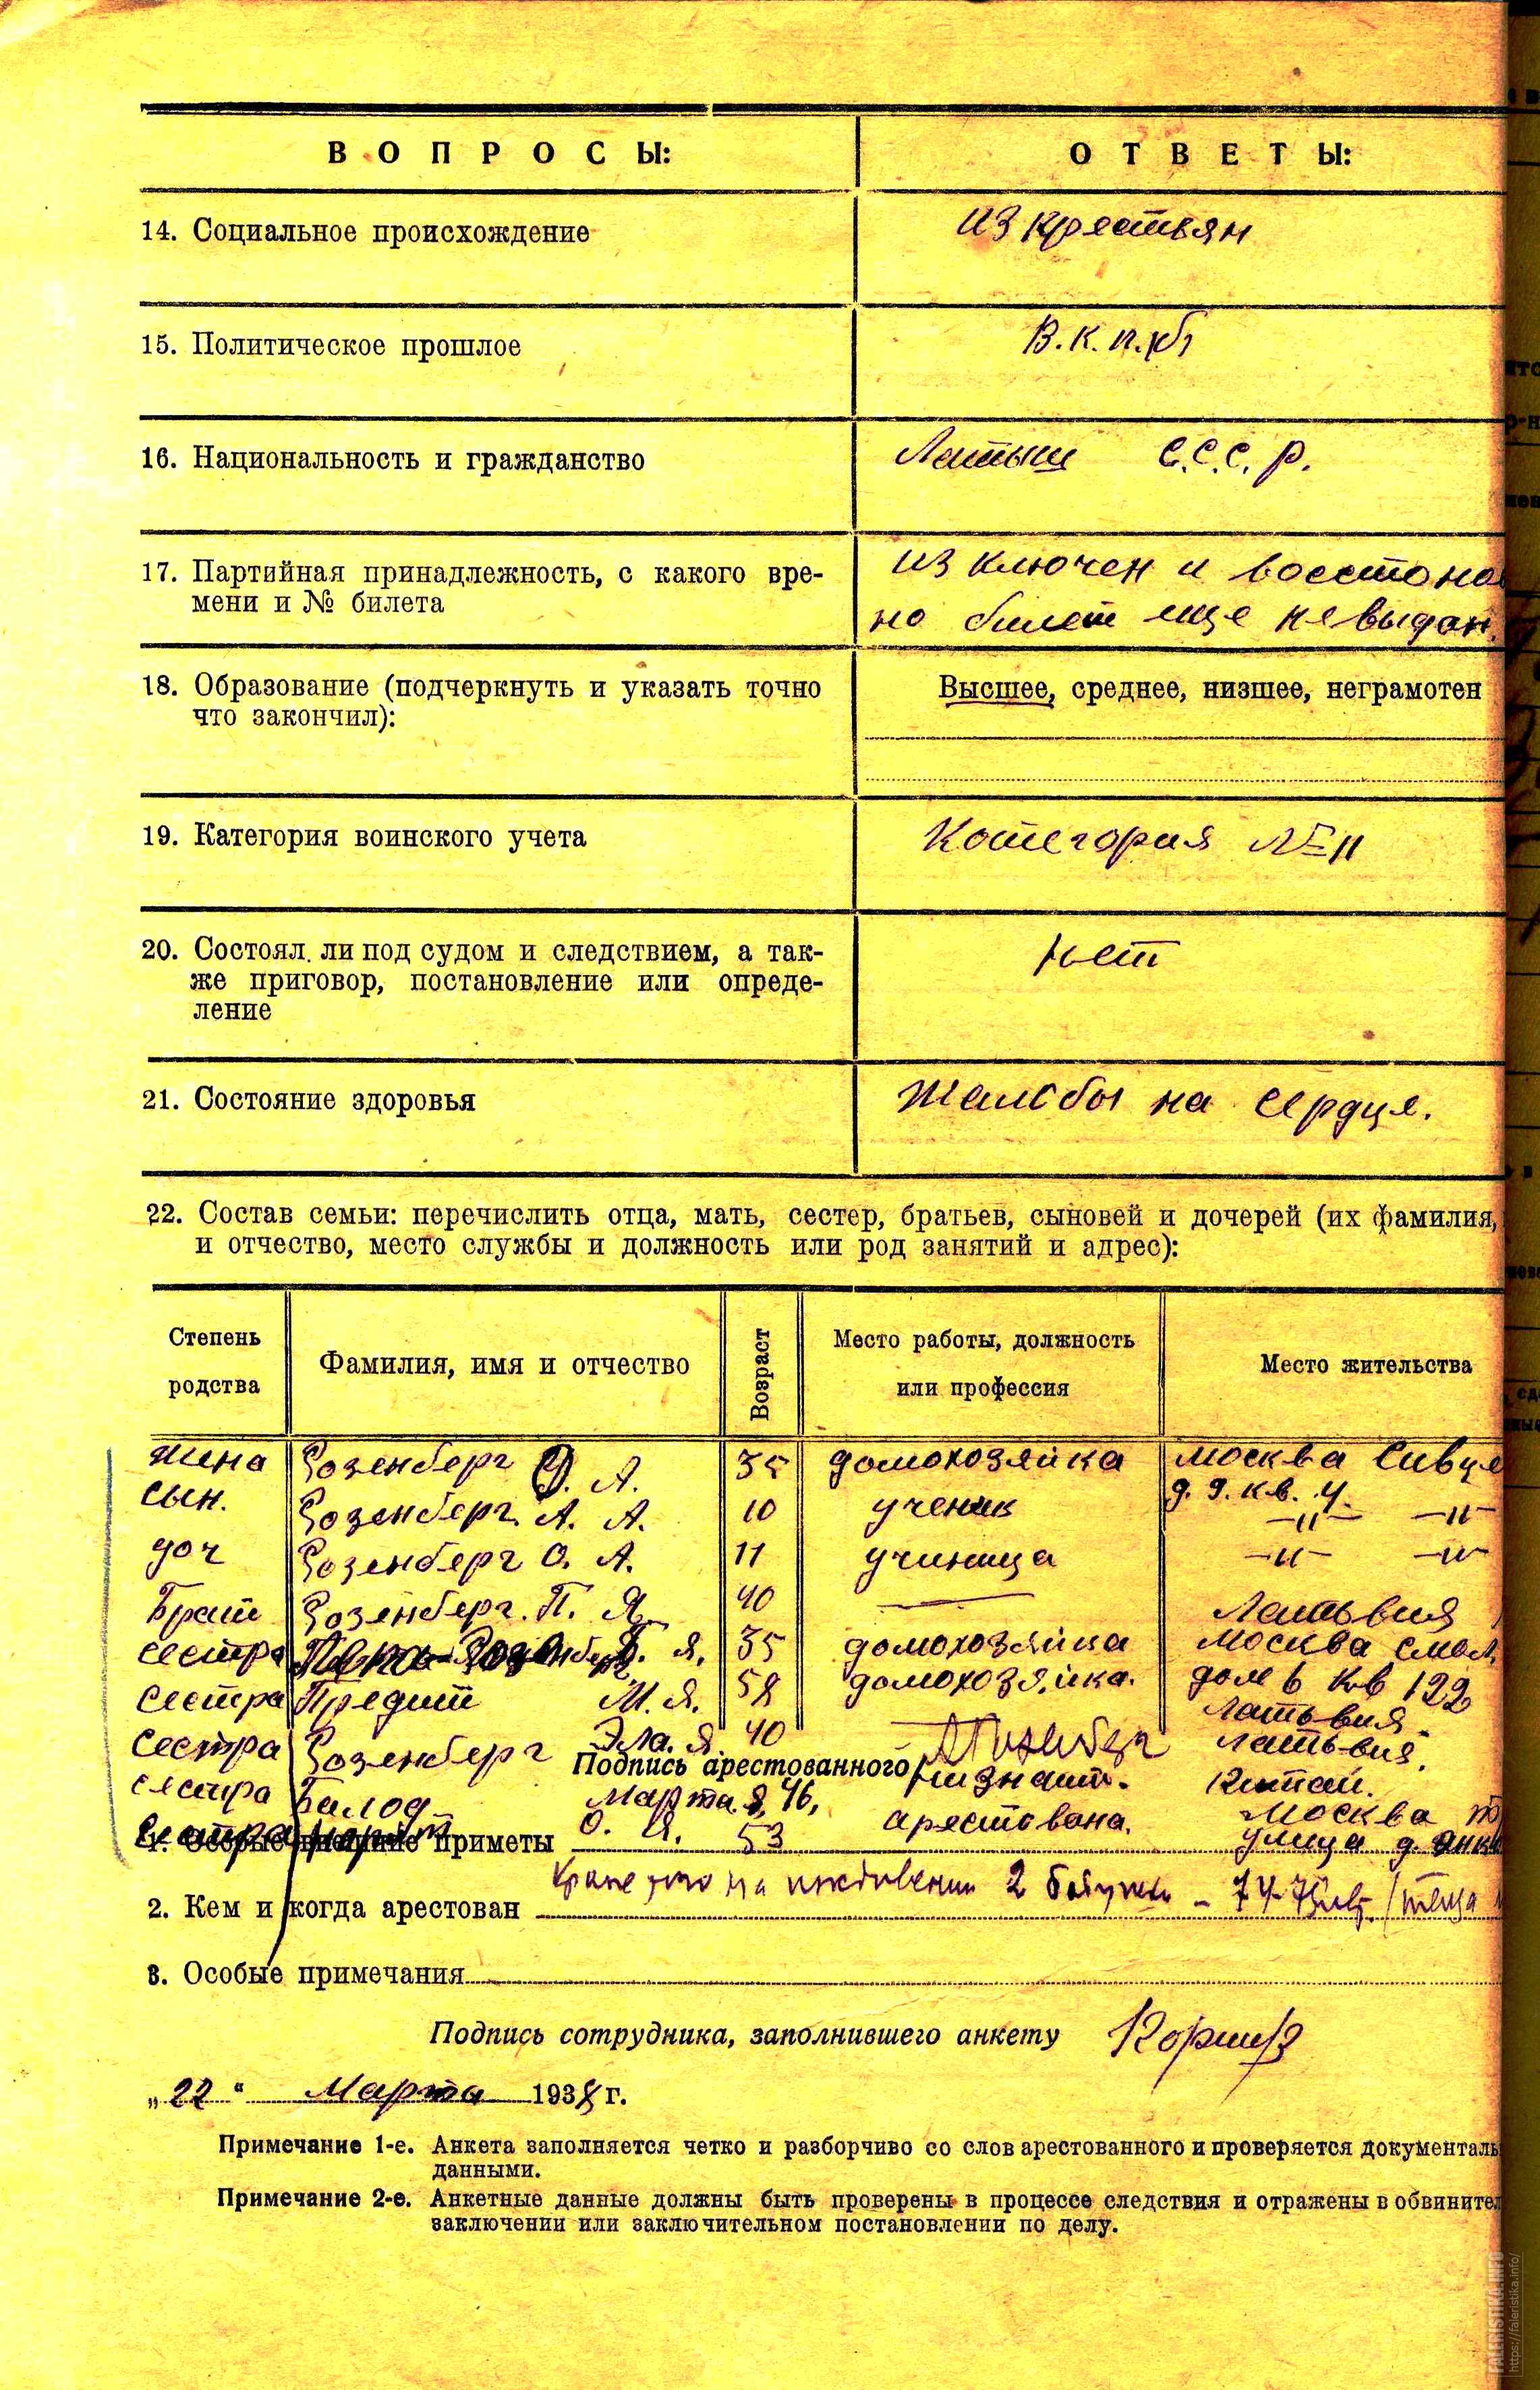 ВОПРОСЫ:
ОТВЕТЫ:
14. Социальное происхождение
из крестьян
15. Политическое прошлое
В.К.П.(б)
16. Национальность и гражданство
Латыш С.С.С.Р.
17. Партийная принадлежность, с какого вре-
мени и № билета
из ключен и восстано
но билет еще не выдан.
18. Образование (подчеркнуть и указать точно
что закончил):
Высшее, среднее, низшее, неграмотен
19. Категория воинского учета
Котегория № 11
20. Состоял ли под судом и следствием, а так-
же приговор, постановление или опреде-
ление
нет
21. Состояние здоровья
Жалобы на сердце.
22. Состав семьи: перечислить отца, мать, сестер, братьев, сыновей и дочерей (их фамилия,
и отчество, место службы и должность или род занятий и адрес):
Степень родства
Фамилия, имя и отчество
Возраст
Место работы, должность или профессия
Место жительства
жена Розенберг О. А. 35 домохозяйка Москва Сивце
д. 9. кв. 4.
сын. Розенберг. А. А. 10 ученик —"— —"—
доч Розенберг О. А. 11 учиница —"— —"—
Брат Розенберг. П. Я. 40 — Латьвия
сестра Я. 35 домохозяйка Москва Смол.
дом 6 кв 122
сестра Предит М. Я. 58 домохозяйка. Латьвия.
сестра Розенберг Эла. Я 40 Латьвия.
Подпись арестованного
сестра Балод Марта. Я, 46, незнаит. Китай.
сестра О. Я. 53 арестована. Москва
улица д.
1. Особые внешние приметы
Кроме того на иждивении 2 бабушки – (теща
2. Кем и когда арестован
3. Особые примечания
Подпись сотрудника, заполнившего анкету
„22" Марта 1938 г.
Примечание 1-е. Анкета заполняется четко и разборчиво со слов арестованного и проверяется документаль
данными.
Примечание 2-е. Анкетные данные должны быть проверены в процессе следствия и отражены в обвинител
заключении или заключительном постановлении по делу.
FALERISTIKA.INFO
https://faleristika.info/